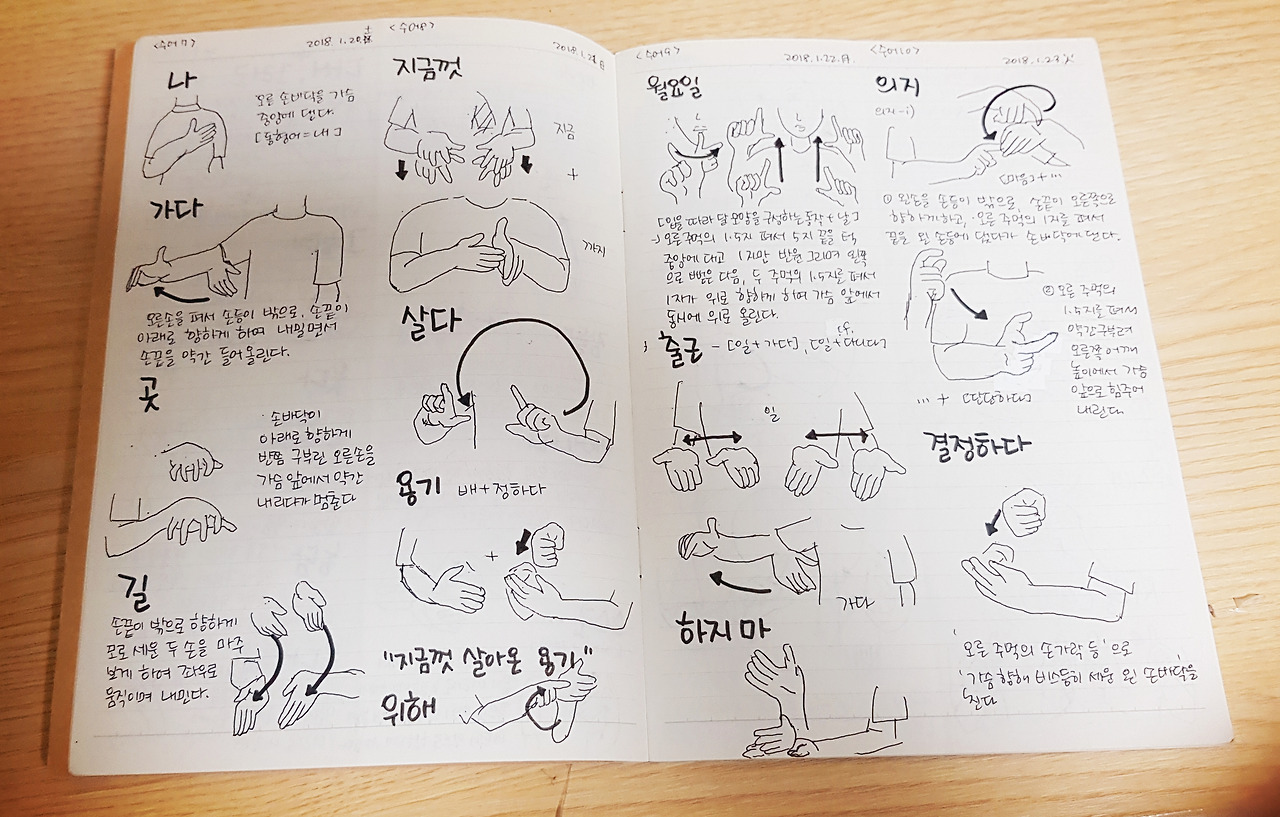 <수어7>
2018.1.20.土
나
오른 손바닥을 가슴
중앙에 댄다.
[동형어=내]
가다
오른손을 펴서 손등이 밖으로, 손끝이
아래로 향하게 하여 내밀면서
손끝을 약간 들어올린다.
곳
손바닥이
아래로 향하게
반쯤 구부린 오른손을
가슴 앞에서 약간
내리다가 멈춘다
길
손끝이 밖으로 향하게
모로 세운 두 손을 마주
보게 하여 좌우로
움직이며 내민다.
<수어8>
2018.1.21.日
지금껏
지금
+
까지
살다
용기 배+정하다
+
"지금껏 살아온 용기"
위해
<수어9>
2018.1.22.月.
월요일
[입을 따라 달 모양을 구성하는 동작+날]
오른 주먹의 1·5지 펴서 5지 끝을 턱
중앙에 대고 1지만 반원 그리며 왼쪽
으로 뻗은 다음, 두 주먹의 1·5지를 펴서
1지가 위로 향하게 하여 가슴 앞에서
동시에 위로 올린다.
cf.
출근 - [일+가다], [일+다니다]
일
가다
하지 마
<수어10>
2018.1.23.火
의지
의지-i)
[마음]+...
① 왼손을 손등이 밖으로, 손끝이 오른쪽으로
향하게 하고, 오른 주먹의 1지를 펴서
끝을 왼 손등에 댔다가 손바닥에 댄다.
② 오른 주먹의
1·5지를 펴서
약간 구부려
오른쪽 어깨
높이에서 가슴
앞으로 힘주어
내린다
... + [당당하다]
결정하다
'오른 주먹의 손가락 등'으로
'가슴 향해 비스듬히 세운 왼 손바닥'을
친다